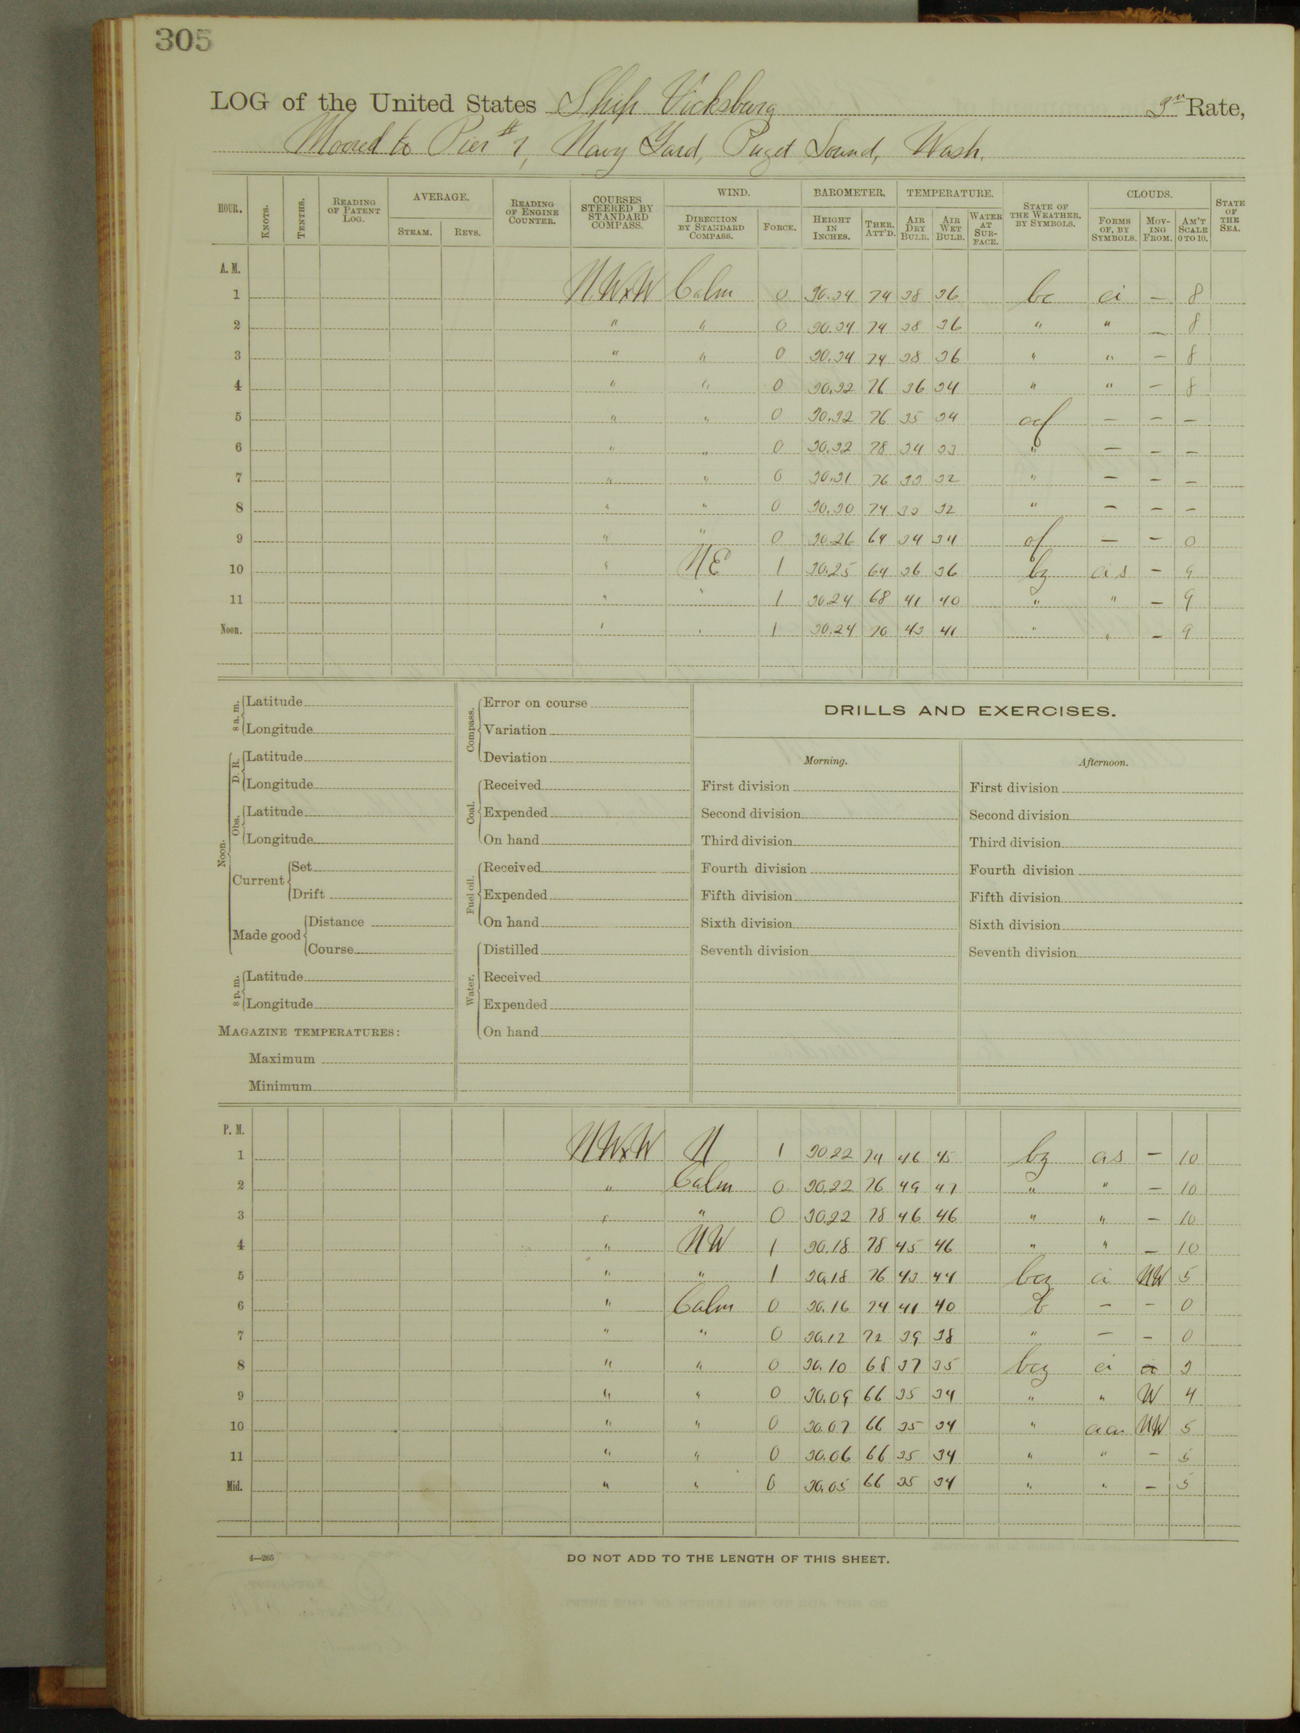 305
LOG of the United States Ship Vicksburg 3rd Rate,
Moored to Pier #7, Navy Yard, Puget Sound, Wash.
HOUR. KNOTS. TENTHS. READING OF PATENT LOG. AVERAGE. STEAM. REVS. READING OF ENGINE COUNTER. COURSES STEERED BY STANDARD COMPASS. WIND. DIRECTION BY STANDARD COMPASS. FORCE. BAROMETER. HEIGHT IN INCHES. THER. ATT'D. TEMPERATURE. AIR DRY BULB. AIR WET BULB. WATER AT SURFACE. STATE OF THE WEATHER, BY SYMBOLS. CLOUDS. FORMS OF, BY SYMBOLS. MOVING FROM. AM'T SCALE 0 TO 10. STATE OF THE SEA.
A. M.
1 NWxW Calm 0 30.34 74 38 36 bc ci — 8
2 " " 0 30.34 74 38 36 " " — 8
3 " " 0 30.34 74 38 36 " " — 8
4 " " 0 30.32 76 36 34 " " — 8
5 " " 0 30.32 76 35 34 ocf — — —
6 " " 0 30.32 78 34 33 " — — —
7 " " 0 30.31 76 33 32 " — — —
8 " " 0 30.30 74 33 32 " — — —
9 " " 0 30.26 64 34 34 of — — 0
10 " NE 1 30.25 64 36 36 bz as — 9
11 " " 1 30.24 68 41 40 " " — 9
Noon. " " 1 30.24 70 43 41 " " — 9
8 a. m. Latitude
Longitude
Noon. D. R. Latitude
Longitude
Obs. Latitude
Longitude
Current Set
Drift
Made good Distance
Course
8 p. m. Latitude
Longitude
MAGAZINE TEMPERATURES:
Maximum
Minimum
Compass. Error on course
Variation
Deviation
Coal. Received
Expended
On hand
Fuel oil. Received
Expended
On hand
Water. Distilled
Received
Expended
On hand
DRILLS AND EXERCISES.
Morning.
First division
Second division
Third division
Fourth division
Fifth division
Sixth division
Seventh division
Afternoon.
First division
Second division
Third division
Fourth division
Fifth division
Sixth division
Seventh division
P. M.
1 NWxW N 1 30.22 74 46 45 bz as — 10
2 " Calm 0 30.22 76 49 47 " " — 10
3 " " 0 30.22 78 46 46 " " — 10
4 " NW 1 30.18 78 45 46 " " — 10
5 " " 1 30.18 76 43 44 bcz ci NW 5
6 " Calm 0 30.16 74 41 40 b — — 0
7 " " 0 30.12 72 39 38 " — — 0
8 " " 0 30.10 68 37 35 bcz ci 3
9 " " 0 30.09 66 35 34 " " W 4
10 " " 0 30.07 66 35 34 " NW 5
11 " " 0 30.06 66 35 34 " " — 5
Mid. " " 0 30.05 66 35 34 " " — 5
4—265
DO NOT ADD TO THE LENGTH OF THIS SHEET.